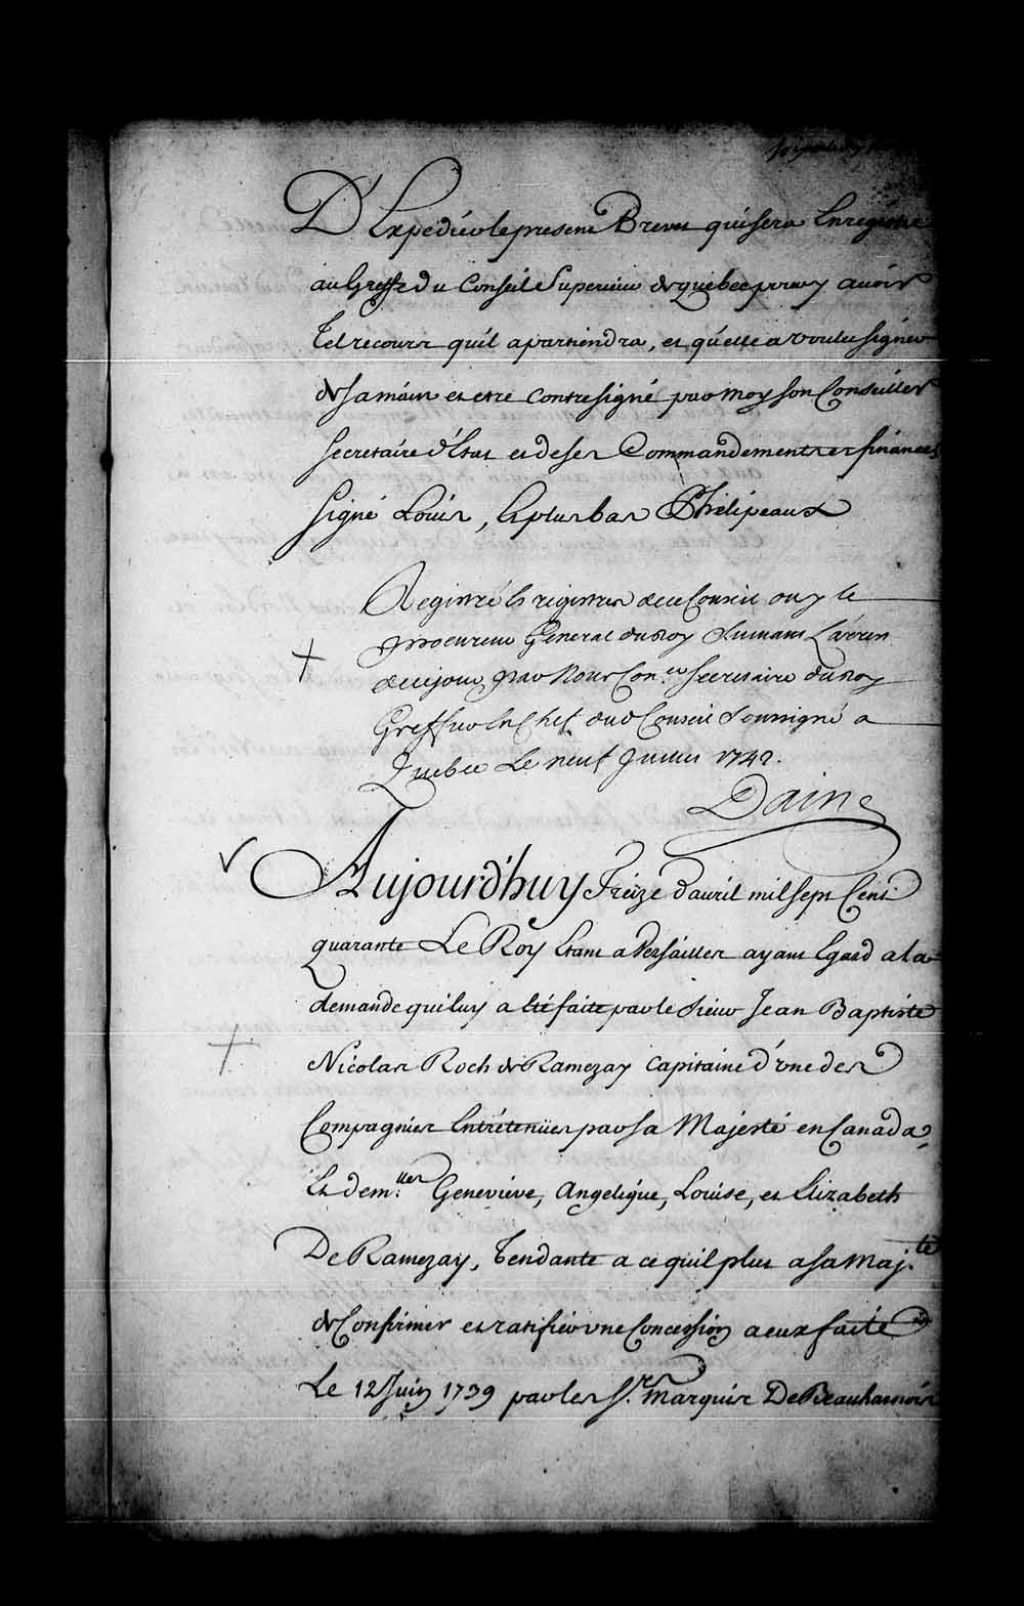 D'Expedier le present Brevet qui sera Enregistré
au Greffe du Conseil Superieur de quebec pour y avoir
Tel recours qu'il apartiendra, et qu'elle a voulu signer
de sa main et etre contresigné par moy son Conseiller
Secretaire d'Etat et de ses Commandements et finances
Signé Louis, Et plus bas Phelipeaux
Registré Es registres de ce Conseil ouy le
Procureur General du Roy Suivant L'arrest
de ce jour par Nous Con.er Secretaire du Roy
Greffier En Chef dud Conseil Soussigné a
Quebec Le neuf 1742.
Daine
Aujourd'huy Treize d'avril mil sept Cent
quarante Le Roy Etant a Versailles ayant Egard a la
demande qui luy a Eté faite par le Sieur Jean Baptiste
Nicolas Roch de Ramezay Capitaine d'une des
Compagnies Entrétenües par sa Majesté en Canada,
Et dem.lles Geneviéve, Angelique, Louise, et Elizabeth
De Ramezay, Tendante a ce qu'il plut a sa Maj.té
de Confirmer et ratifier une Concession a eux faite
Le 12 Juin 1739 par les S.rs Marquis De Beauharnois